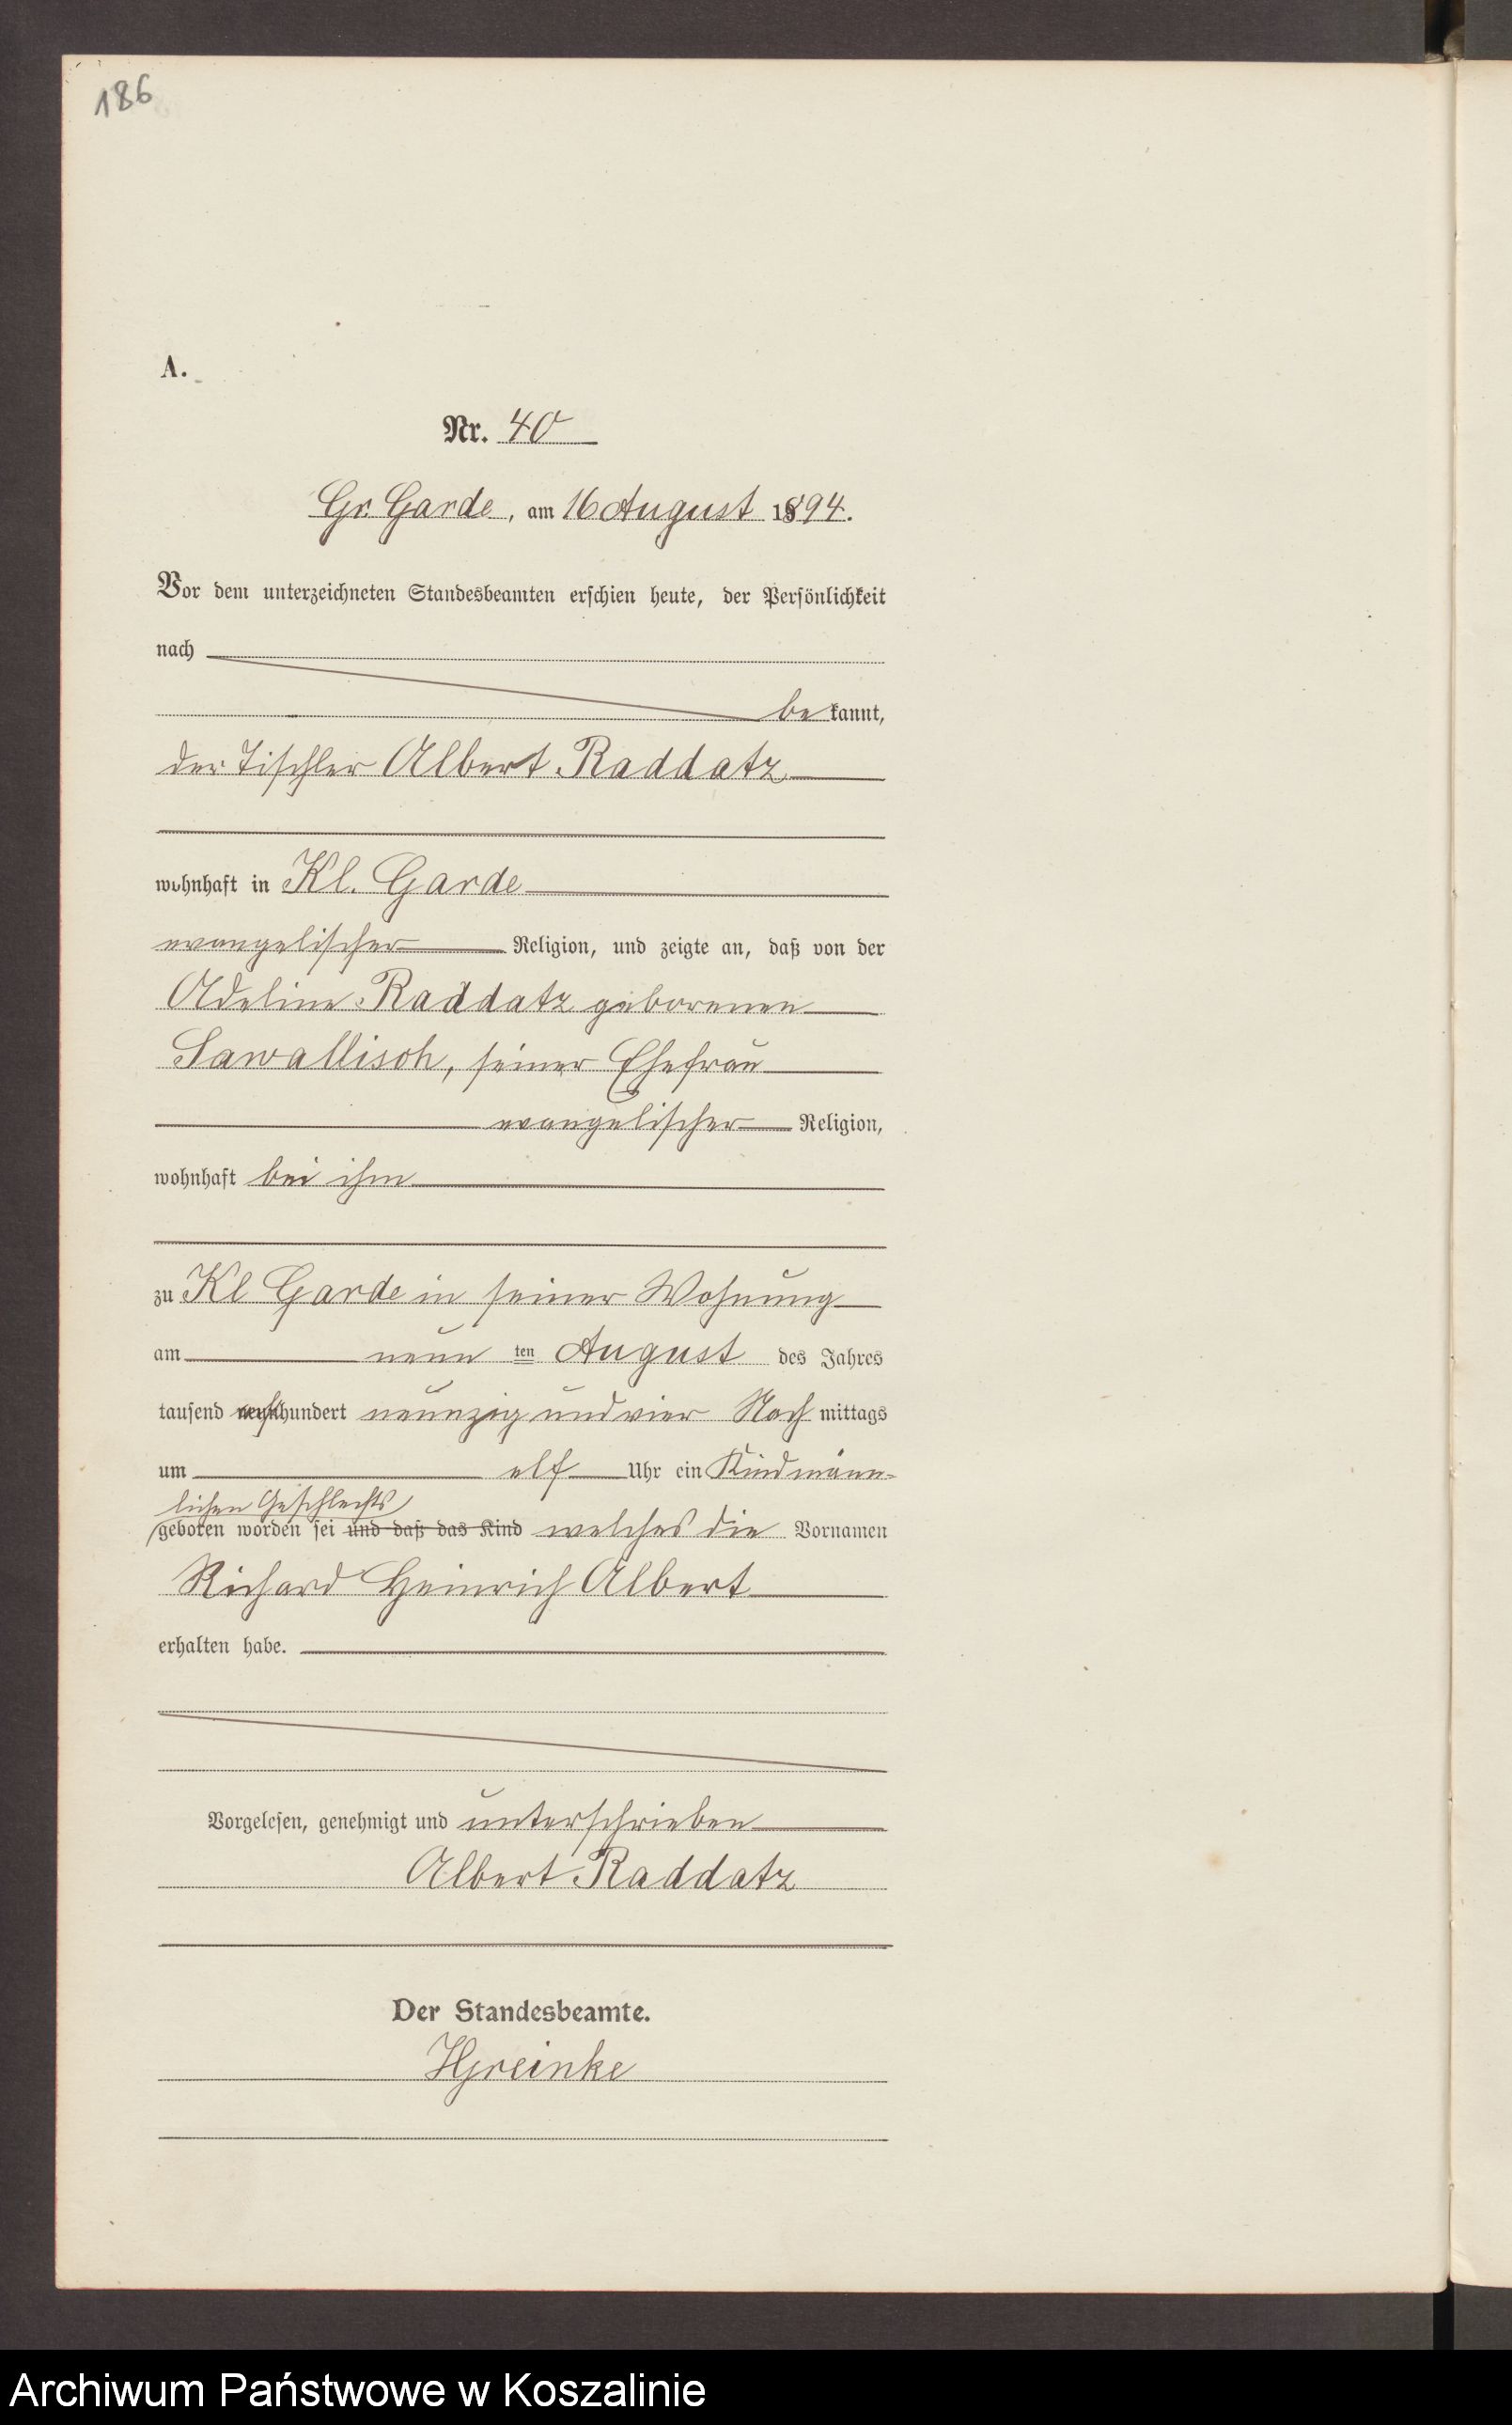 186
A.
Nr. 40
Gr. Garde, am 16 August 1894.
Vor dem unterzeichneten Standesbeamten erschien heute, der Persönlichkeit
nach
be kannt,
der Tischler Albert Raddatz
wohnhaft in Kl. Garde
evangelischer Religion, und zeigte an, daß von der
Adeline Raddatz geborenen
Sawallisch, seiner Ehefrau
evangelischer Religion,
wohnhaft bei ihm
zu Kl Garde in seiner Wohnung
am neun ten August des Jahres
tausend hundert neunzig und vier Nach mittags
um elf Uhr ein Kind männ-
lichen Geschlechts
geboren worden sei und daß das Kind welches die Vornamen
Richard Heinrich Albert
erhalten habe.
Vorgelesen, genehmigt und unterschrieben
Albert Raddatz
Der Standesbeamte.
Archiwum Państwowe w Koszalinie